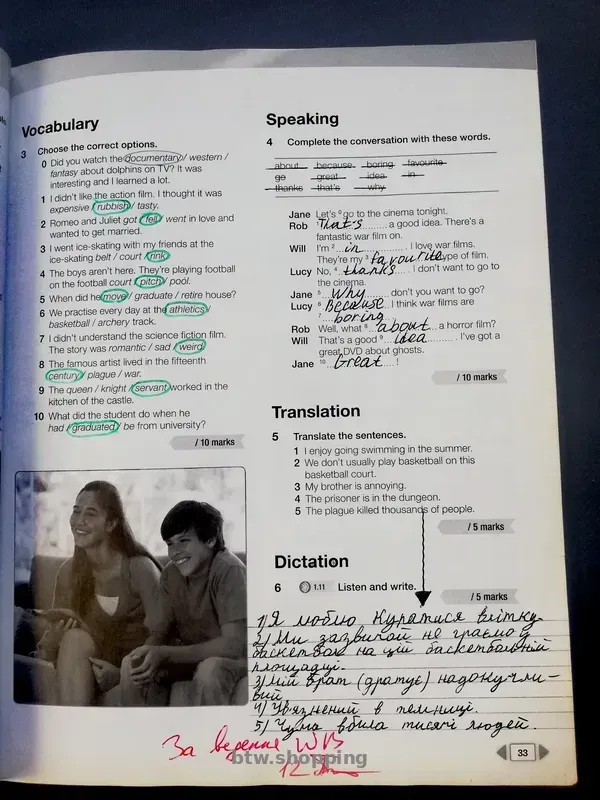 Vocabulary
3 Choose the correct options.
0 Did you watch the documentary / western /
fantasy about dolphins on TV? It was
interesting and I learned a lot.
1 I didn't like the action film. I thought it was
expensive / rubbish / tasty.
2 Romeo and Juliet got / fell / went in love and
wanted to get married.
3 I went ice-skating with my friends at the
ice-skating belt / court / rink.
4 The boys aren't here. They're playing football
on the football court / pitch / pool.
5 When did he move / graduate / retire house?
6 We practise every day at the athletics /
basketball / archery track.
7 I didn't understand the science fiction film.
The story was romantic / sad / weird.
8 The famous artist lived in the fifteenth
century / plague / war.
9 The queen / knight / servant worked in the
kitchen of the castle.
10 What did the student do when he
had / graduated / be from university?
/ 10 marks
Speaking
4 Complete the conversation with these words.
about because boring favourite
go great idea in
thanks that's why
Jane Let's 0 go to the cinema tonight.
Rob 1 That's a good idea. There's a
fantastic war film on.
Will I'm 2 in. I love war films.
They're my 3 favourite type of film.
Lucy No, 4 thanks. I don't want to go to
the cinema.
Jane 5 Why don't you want to go?
Lucy 6 Because I think war films are
7 boring.
Rob Well, what 8 about a horror film?
Will That's a good 9 idea. I've got a
great DVD about ghosts.
Jane 10 Great!
/ 10 marks
Translation
5 Translate the sentences.
1 I enjoy going swimming in the summer.
2 We don't usually play basketball on this
basketball court.
3 My brother is annoying.
4 The prisoner is in the dungeon.
5 The plague killed thousands of people.
/ 5 marks
Dictation
6 1.11 Listen and write.
/ 5 marks
1) Я люблю купатися влітку
2) Ми зазвичай не граємо у
баскетбол на цій баскетбольній
площадці.
3) Мій брат (дратує) надокучли-
вий
4) Ув'язнений в темниці.
5) Чума вбила тисячі людей.
За ведення WB
12
btw.shopping
33